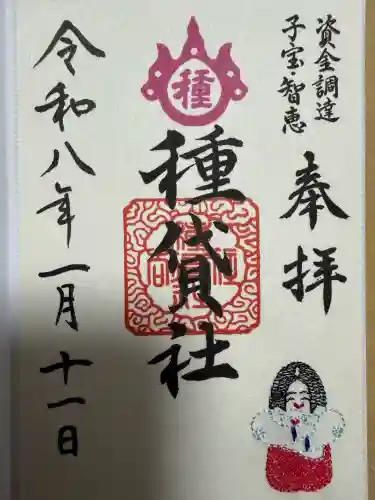 資金調達
子宝智恵
奉拝
種
種貸社
令和八年一月十一日